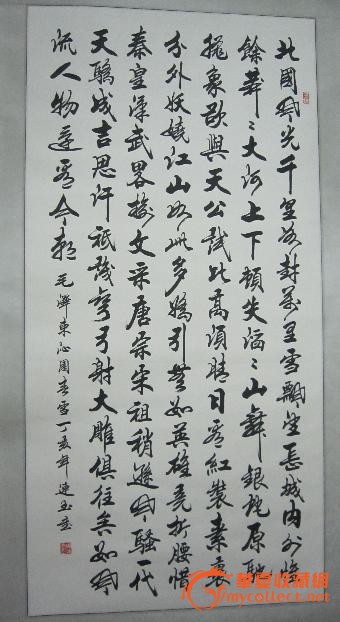 北國風光千里冰封萬里雪飄望長城内外惟
餘莽〻大河上下頓失滔〻山舞銀蛇原馳
臘象欲與天公試比高須晴日看紅裝素裹
分外妖嬈江山如此多嬌引無數英雄竞折腰惜
秦皇漢武畧輸文采唐宗宋祖稍遜風騷一代
天驕成吉思汗祇識彎弓射大雕俱往矣數風
流人物還看今朝 毛澤東沁園春雪丁亥年建玉書
华夏收藏网
mycollect.net